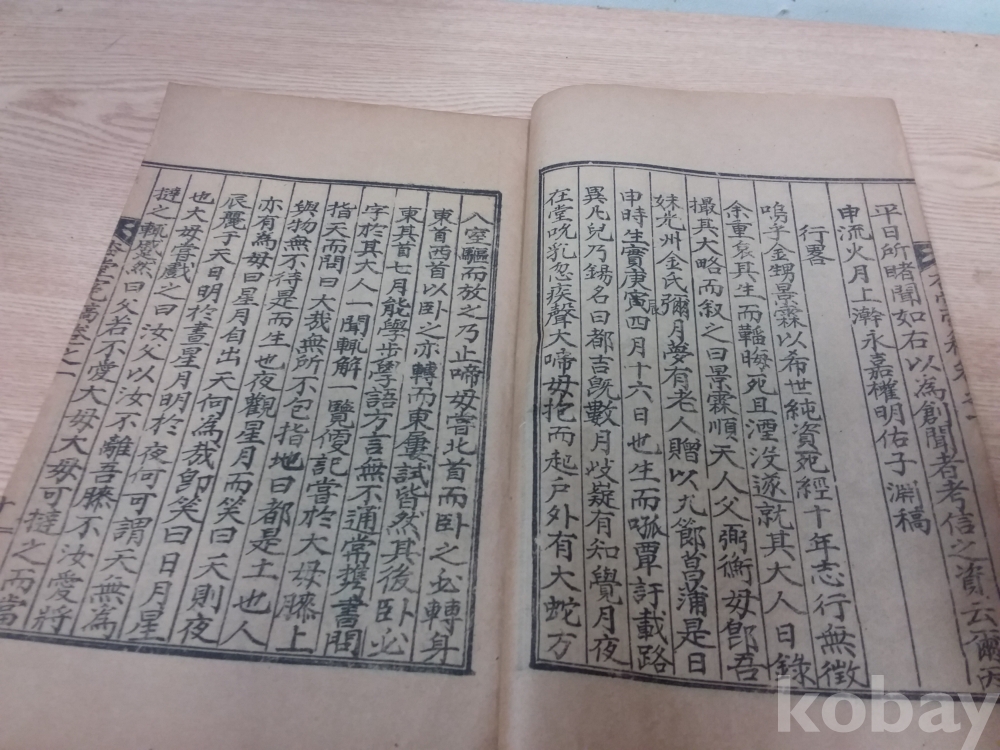 平日所睹聞如右以爲創聞者考信之資云爾丙
申流火月上澣永嘉權明佑子淵稿
行畧
嗚乎金甥景霖以希世純資死經十年志行無徵
余重哀其生而韜晦死且湮沒遂就其大人日錄
撮其大略而叙之曰景霖順天人父弼衡母卽吾
妹光州金氏彌月夢有老人贈以九節菖蒲是日
申時生實庚寅四月十六日也生而呱覃訏載路
辰
異凡兒乃錫名曰都吉旣數月岐嶷有知覺月夜
在堂吮乳忽疾聲大啼母抱而起戶外有大蛇方
入室驅而放之乃止啼母嘗北首而臥之必轉身
東首西首以臥之亦轉而東屢試皆然其後臥必
東其首七月能學步學語方言無不通常携書問
字於其大人一聞輒解一覽便記嘗於大母膝上
指天而問曰大哉無所不包指地曰都是土也人
與物無不待是而生也夜觀星月而笑曰天則夜
亦有爲母曰星月自出天何爲哉卽笑曰日月星
辰麗于天日明於晝星月明於夜何可謂天無爲
也大母嘗戲之曰汝父以汝不離吾膝不汝愛將
撻之輒蹙然曰父若不愛大母大母可撻之而當
卷之一
十一
kobay